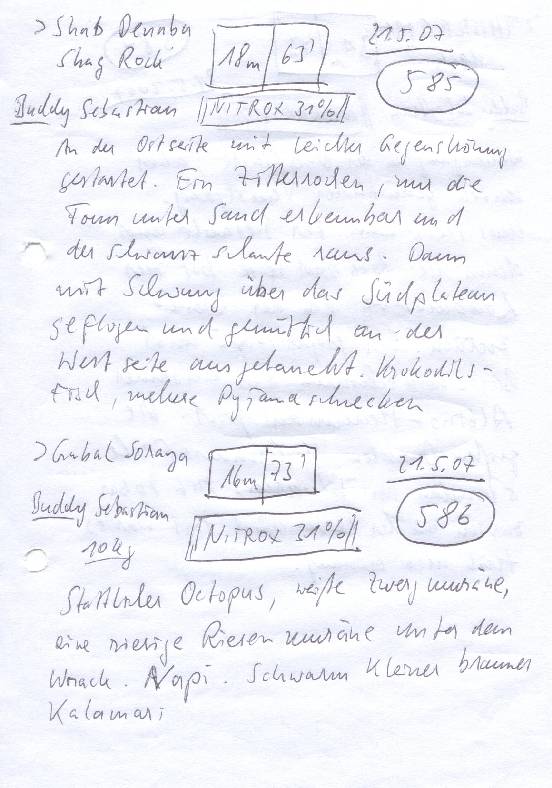 > Shab Denaba
Shag Rock
18m 63'
21.5.07
585
Buddy Sebastian NITROX 31%
An der Ostseite mit leichter Gegenströmung
gestartet. Ein Zitterrochen, nur die
Form unter Sand erkennbar und
der Schwanz schaute raus. Dann
mit Schwung über das Südplateau
geflogen und gemütlich an der
Westseite ausgetaucht. Krokodils-
fisch, mehere Pyjamaschnecken
> Gubal Soraya
16m 73'
21.5.07
586
Buddy Sebastian
NITROX 31%
10kg
Stattlicher Octopus, weiße Zwergmuräne,
eine riesige Riesenmuräne unter dem
Wrack. Napi. Schwarm kleiner brauner
Kalamari